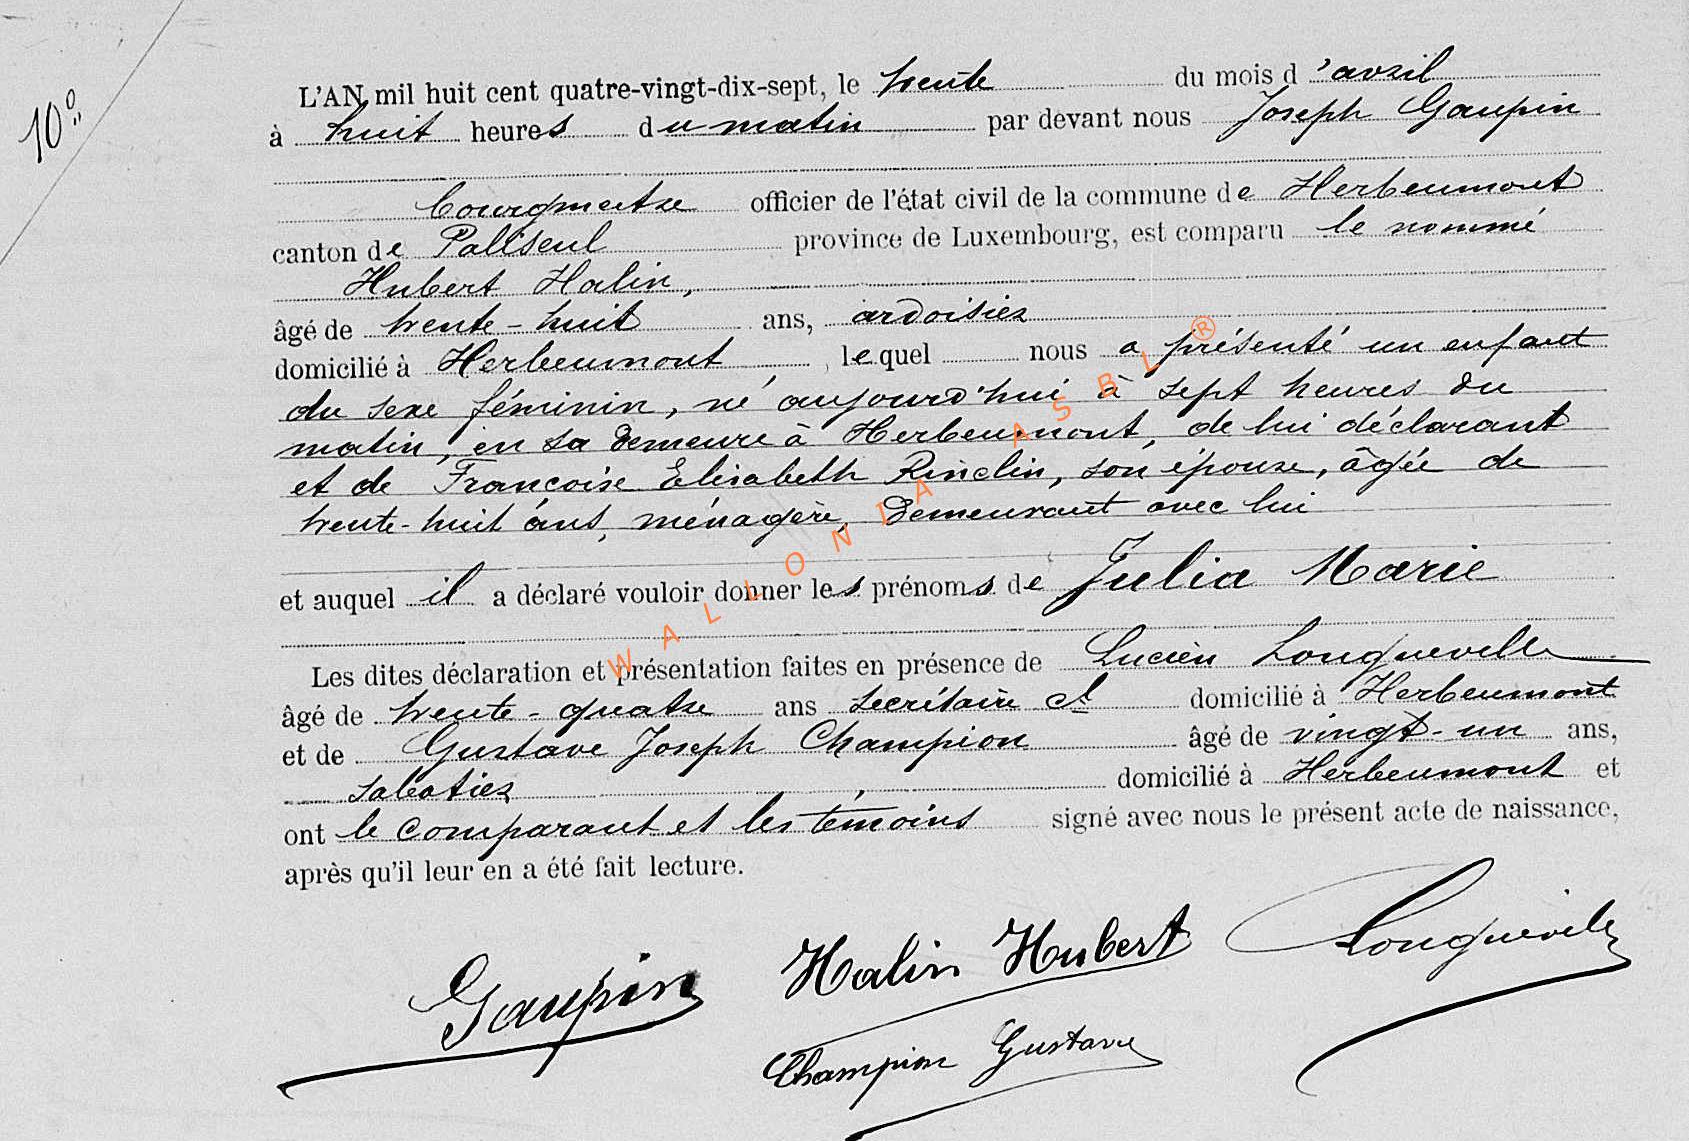 10°
L'AN mil huit cent quatre-vingt-dix-sept, le trente du mois d'avril
à huit heures du matin par devant nous Joseph Gaupin
Bourgmestre officier de l'état civil de la commune de Herbeumont
canton de Paliseul province de Luxembourg, est comparu le nommé
Hubert Halin,
âgé de trente-huit ans, ardoisier
domicilié à Herbeumont, lequel nous a présenté un enfant
du sexe féminin, né aujourd'hui à sept heures du
matin, en sa demeure à Herbeumont, de lui déclarant
et de Françoise Elisabeth Rinclin, son épouse, âgée de
trente-huit ans, ménagère, demeurant avec lui
et auquel il a déclaré vouloir donner les prénoms de Julia Marie
Les dites déclaration et présentation faites en présence de Lucien Longueville
âgé de trente-quatre ans secrétaire cl domicilié à Herbeumont
et de Gustave Joseph Champion âgé de vingt-un ans,
sabotier domicilié à Herbeumont et
ont le comparant et les témoins signé avec nous le présent acte de naissance,
après qu'il leur en a été fait lecture.
Gaupin Halin Hubert Longueville
Champion Gustave
WALLONIA ASBL ®